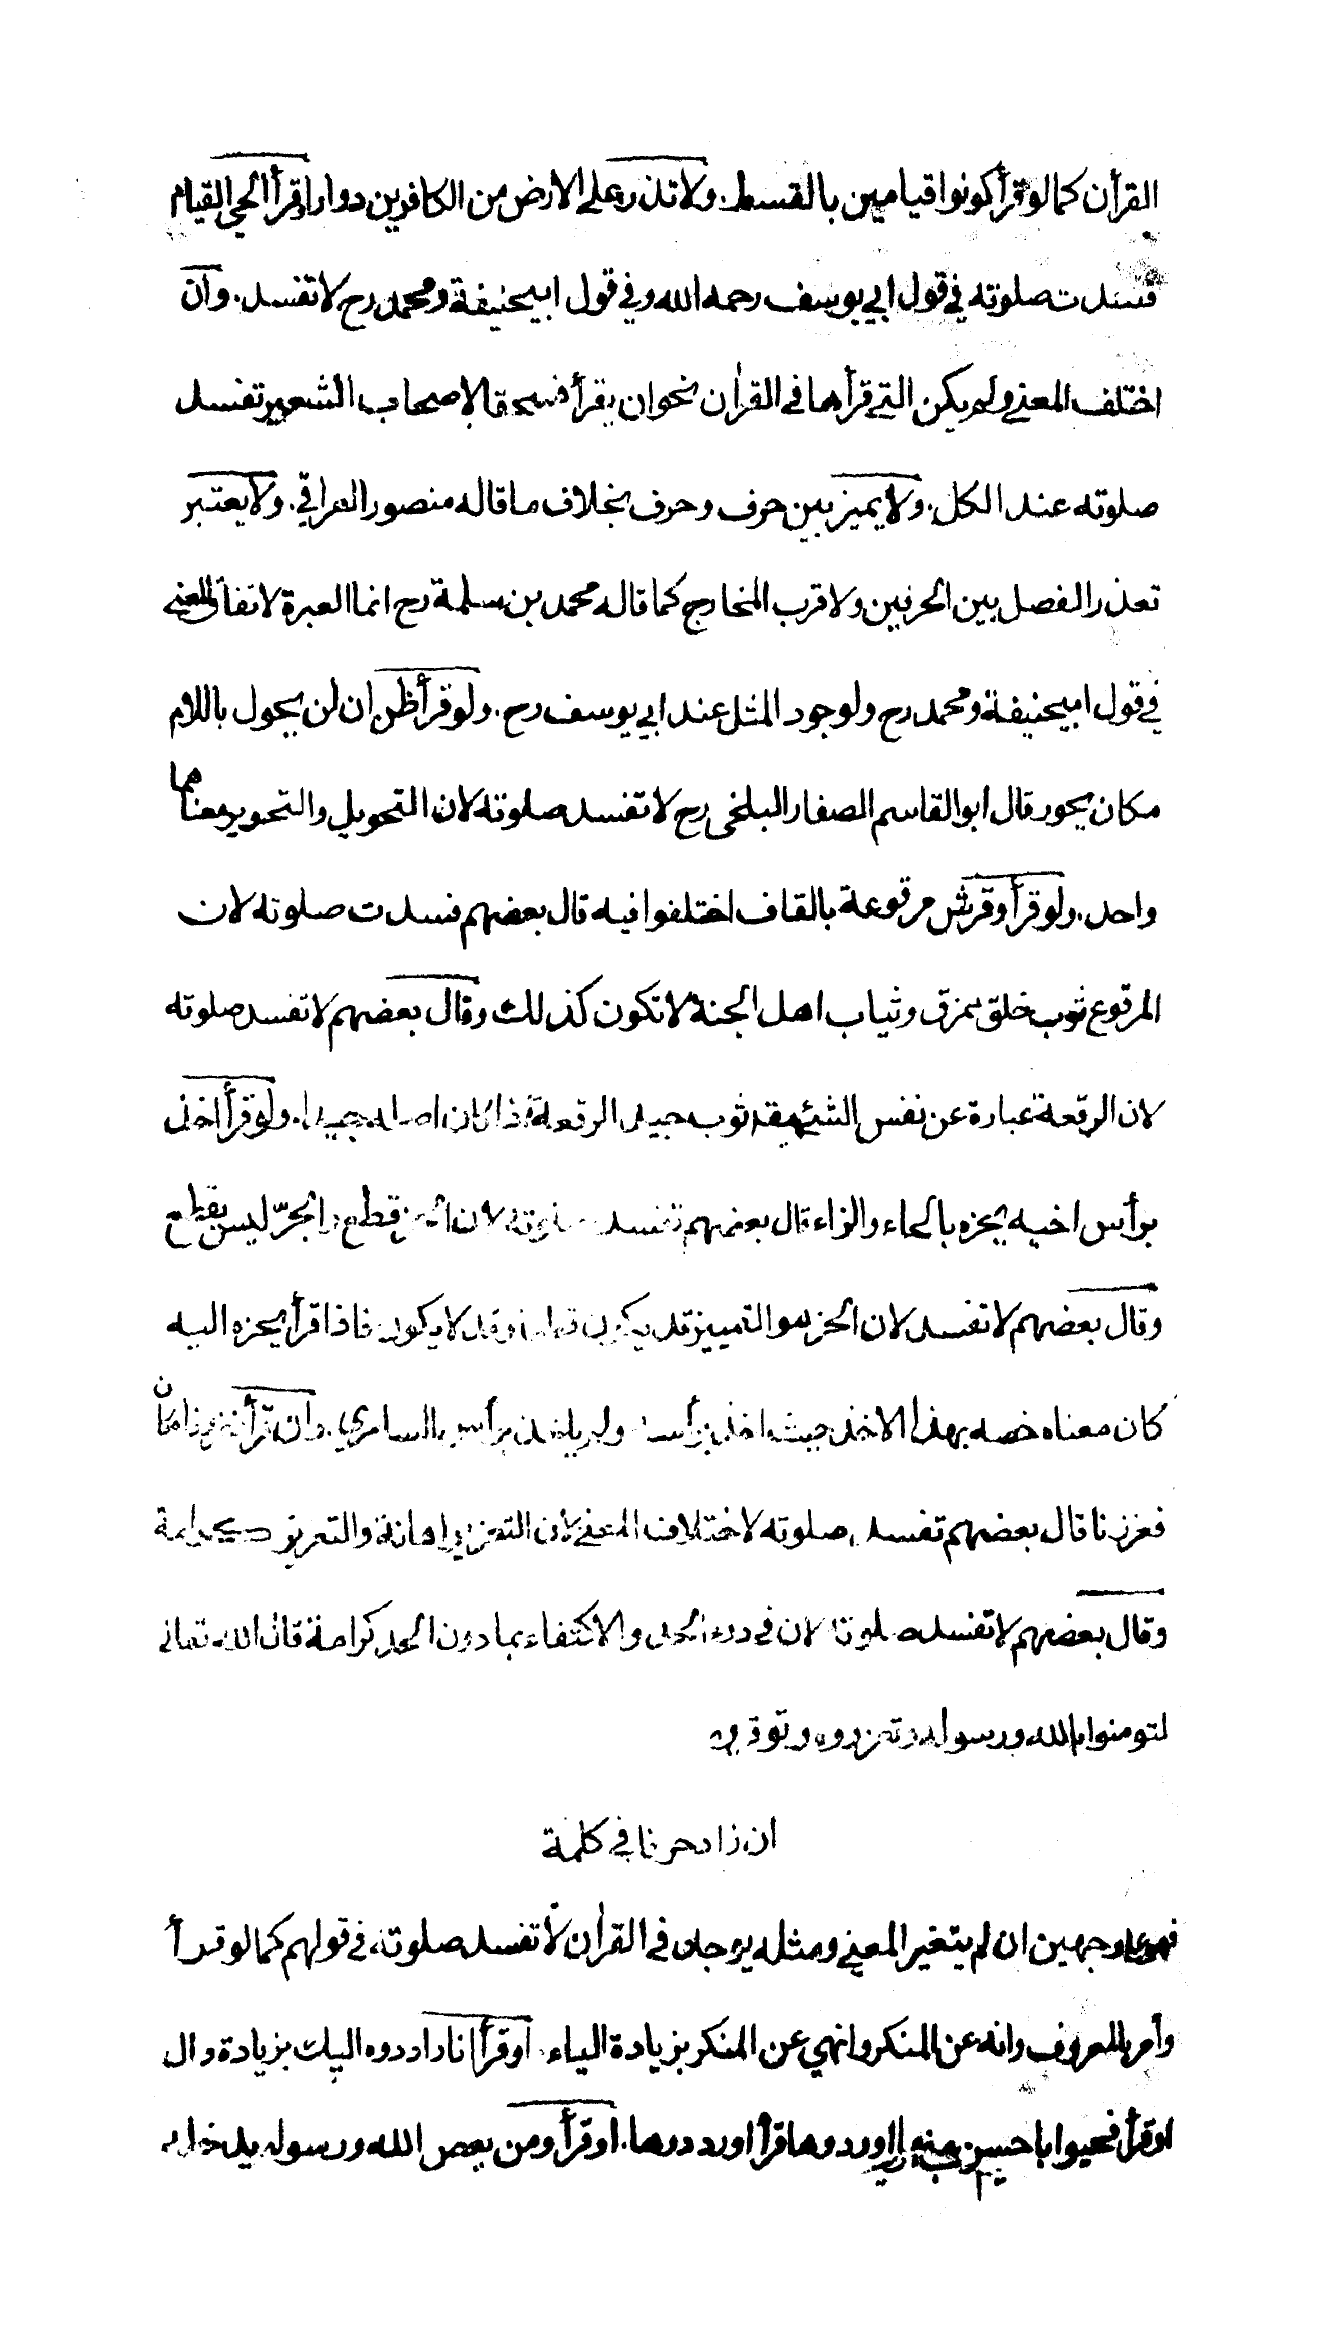 القرأن كما لو قرأ كونوا قيامين بالقسط. ولا تذر على الارض من الكافرين دوارا وقرأ الحي القيام
فسدت صلوته في قول ابي يوسف رحمه الله وفي قول ابيحنيفة ومحمد رح لا تفسد. وان
اختلف المعنى ولم يكن التي قرأها في القرأن نحو ان يقرأ فسحقا لاصحاب الشعير تفسد
صلوته عند الكل. ولا يميز بين حرف وحرف بخلاف ما قاله منصور العراقي. ولا يعتبر
تعذر الفصل بين الحرفين ولا قرب المخارج كما قاله محمد بن سلمة رح انما العبرة لاتفاق المعنى
في قول ابيحنيفة ومحمد رح ولوجود المثل عند ابي يوسف رح. ولو قرأ ظن ان لن يحول باللام
مكان يحور قال ابو القاسم الصفار البلخي رح لا تفسد صلوته لان التحويل والتحوير معناهما
واحد. ولو قرأ وقرش مرقوعة بالقاف اختلفوا فيه قال بعضهم فسدت صلوته لان
المرقوع ثوب خلق يمزق وثياب اهل الجنة لا تكون كذلك وقال بعضهم لا تفسد صلوته
لان الرقعة عبارة عن نفس الشئ يقد ثوب جيد الرقعة اذا كان اصله جيدا. ولو قرأ اخذ
برأس اخيه يحزه بالحاء والزاء قال بعضهم تفسد صلوته لان الحز قطع والجرّ ليس بقطع
وقال بعضهم لا تفسد لان الحز هو التمييز قد يكون قطعا وقد لا يكون فاذا قرأ يحزه اليه
كان معناه خصه بهذا الاخذ حيث اخذ برأسه ولم ياخذ برأس السامري. وان قرأ فعززنا مكان
فعززنا قال بعضهم تفسد صلوته لاختلاف المعنى لان التعزير اهانة والتعزيز كرامة
وقال بعضهم لا تفسد صلوته لان في درء الحد والاكتفاء بما دون الحد كرامة قال الله تعالى
لتومنوا بالله ورسوله وتعزروه وتوقروه
ان زاد حرفا في كلمة
فهو على وجهين ان لم يتغير المعنى ومثله يوجد في القرأن لا تفسد صلوته في قولهم كما لو قرأ
وأمر بالمعروف وانه عن المنكر وانهي عن المنكر بزيادة الياء. اوقرأ انا راددوه اليك بزيادة دال
اوقرأ فحيوا باحسن منها اوردوها قرأ اورددوها. اوقرأ ومن يعص الله ورسوله يدخله